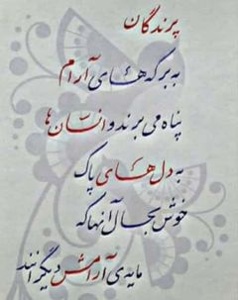 پرندگان
به برکه‌های آرام
پناه می برند و انسان ها
به دل های پاک
خوش بحال آنها که
مایه ی آرامش دیگرانند